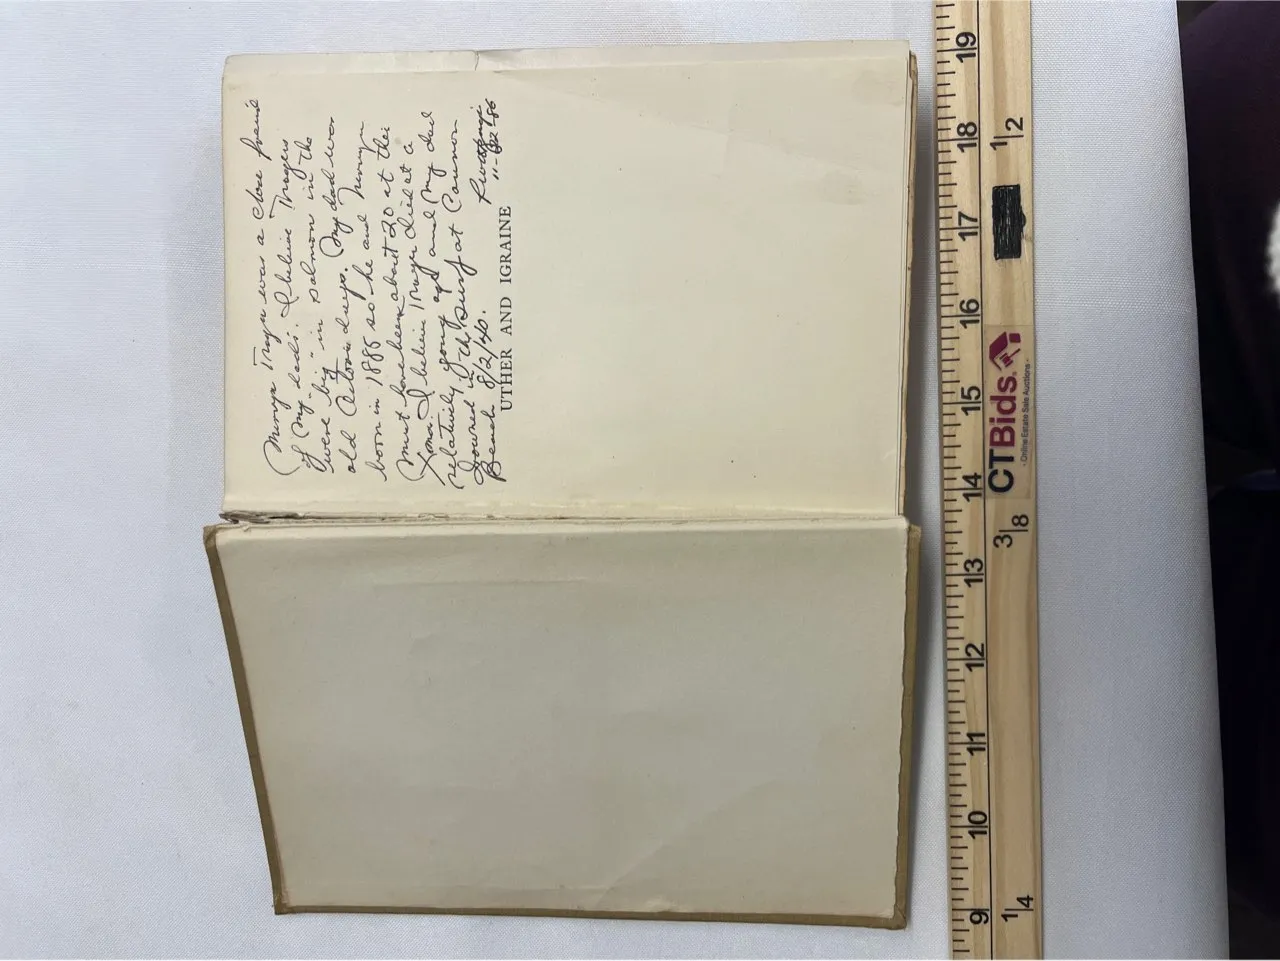 was a close friend
of my dad's. I believe Trayers
were "big" in salmon in the
old Astoria days. My dad was
born in 1885 so he and
must have been about 20 at the
time. I believe Trayer died at a
relatively young age and my dad
drowned in the surf at Cannon
Beach 8/2/40.
11-22-86
UTHER AND IGRAINE
19
18
17
16
15
14
13
12
11
10
9
1/2
3/8
1/4
CTBids
- Online Estate Sale Auctions -